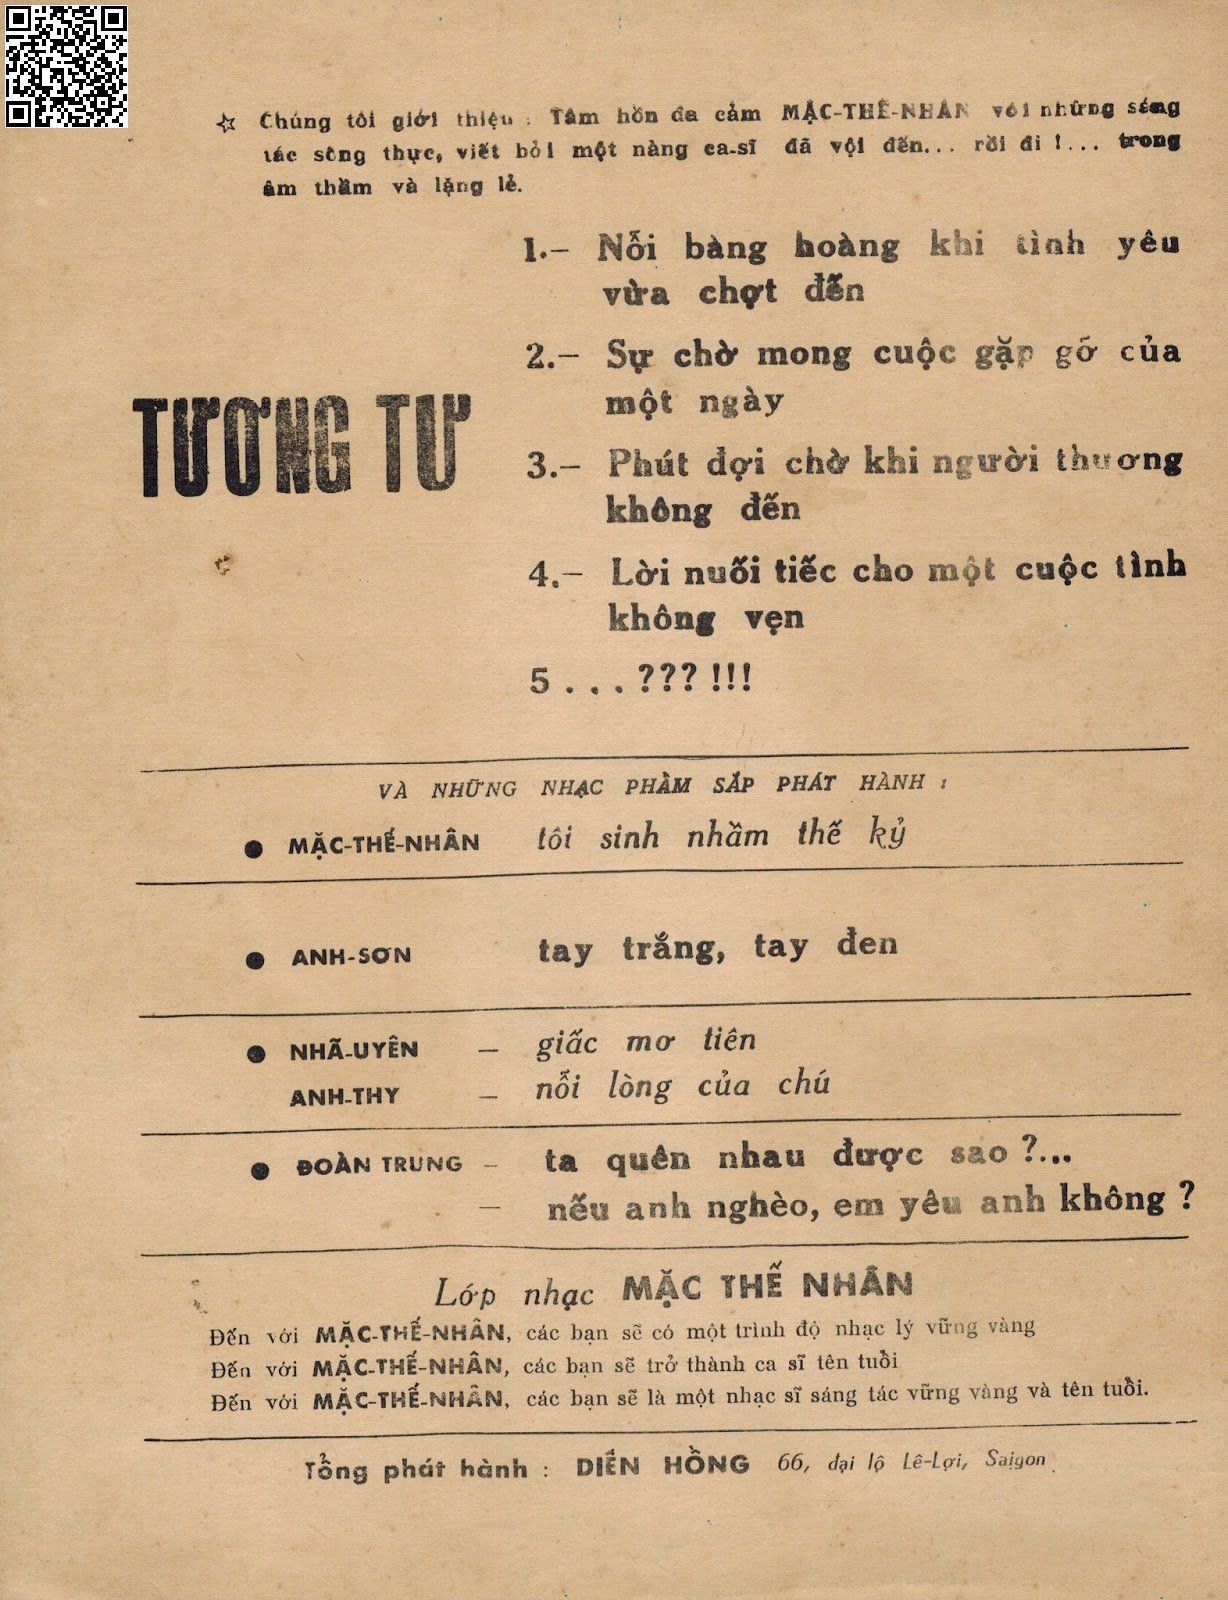 ☆ Chúng tôi giới thiệu : Tâm hồn đa cảm MẶC-THẾ-NHÂN với những sáng
tác sống thực, viết bởi một nàng ca-sĩ đã vội đến... rồi đi !... trong
âm thầm và lặng lẻ.
1.– Nỗi bàng hoàng khi tình yêu
vừa chợt đến
2.– Sự chờ mong cuộc gặp gỡ của
một ngày
TƯƠNG TƯ
3.– Phút đợi chờ khi người thương
không đến
4.– Lời nuối tiếc cho một cuộc tình
không vẹn
5 . . . ??? !!!
VÀ NHỮNG NHẠC PHẨM SẮP PHÁT HÀNH :
● MẶC-THẾ-NHÂN tôi sinh nhầm thế kỷ
● ANH-SƠN tay trắng, tay đen
● NHÃ-UYÊN – giấc mơ tiên
ANH-THY – nỗi lòng của chú
● ĐOÀN TRUNG – ta quên nhau được sao ?...
– nếu anh nghèo, em yêu anh không ?
Lớp nhạc MẶC THẾ NHÂN
Đến với MẶC-THẾ-NHÂN, các bạn sẽ có một trình độ nhạc lý vững vàng
Đến với MẶC-THẾ-NHÂN, các bạn sẽ trở thành ca sĩ tên tuổi
Đến với MẶC-THẾ-NHÂN, các bạn sẽ là một nhạc sĩ sáng tác vững vàng và tên tuổi.
Tổng phát hành : DIÊN HỒNG 66, đại lộ Lê-Lợi, Saigon